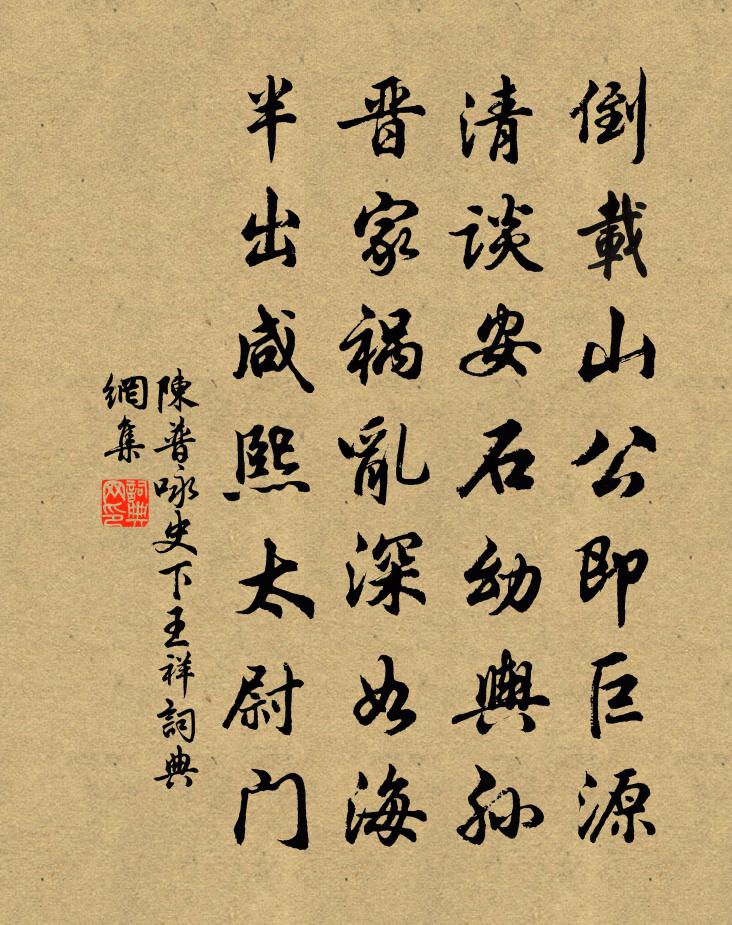 倒載山公即巨源
清談安石幼輿孫
晋家禍亂深如海
半出咸熙太尉門
陳普咏史下王祥詞典
網集
詞典
网印